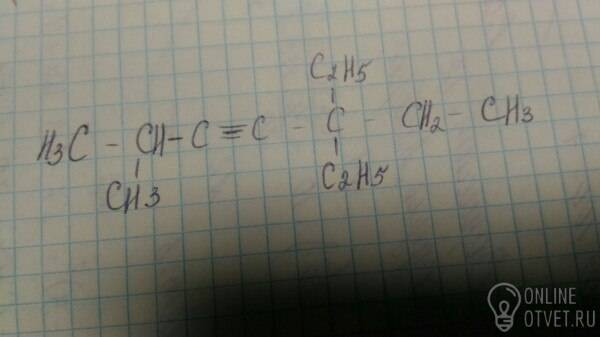 C2H5
H3C - CH - C ≡ C - C - CH2 - CH3
CH3
C2H5
ONLINE
OTVET.RU